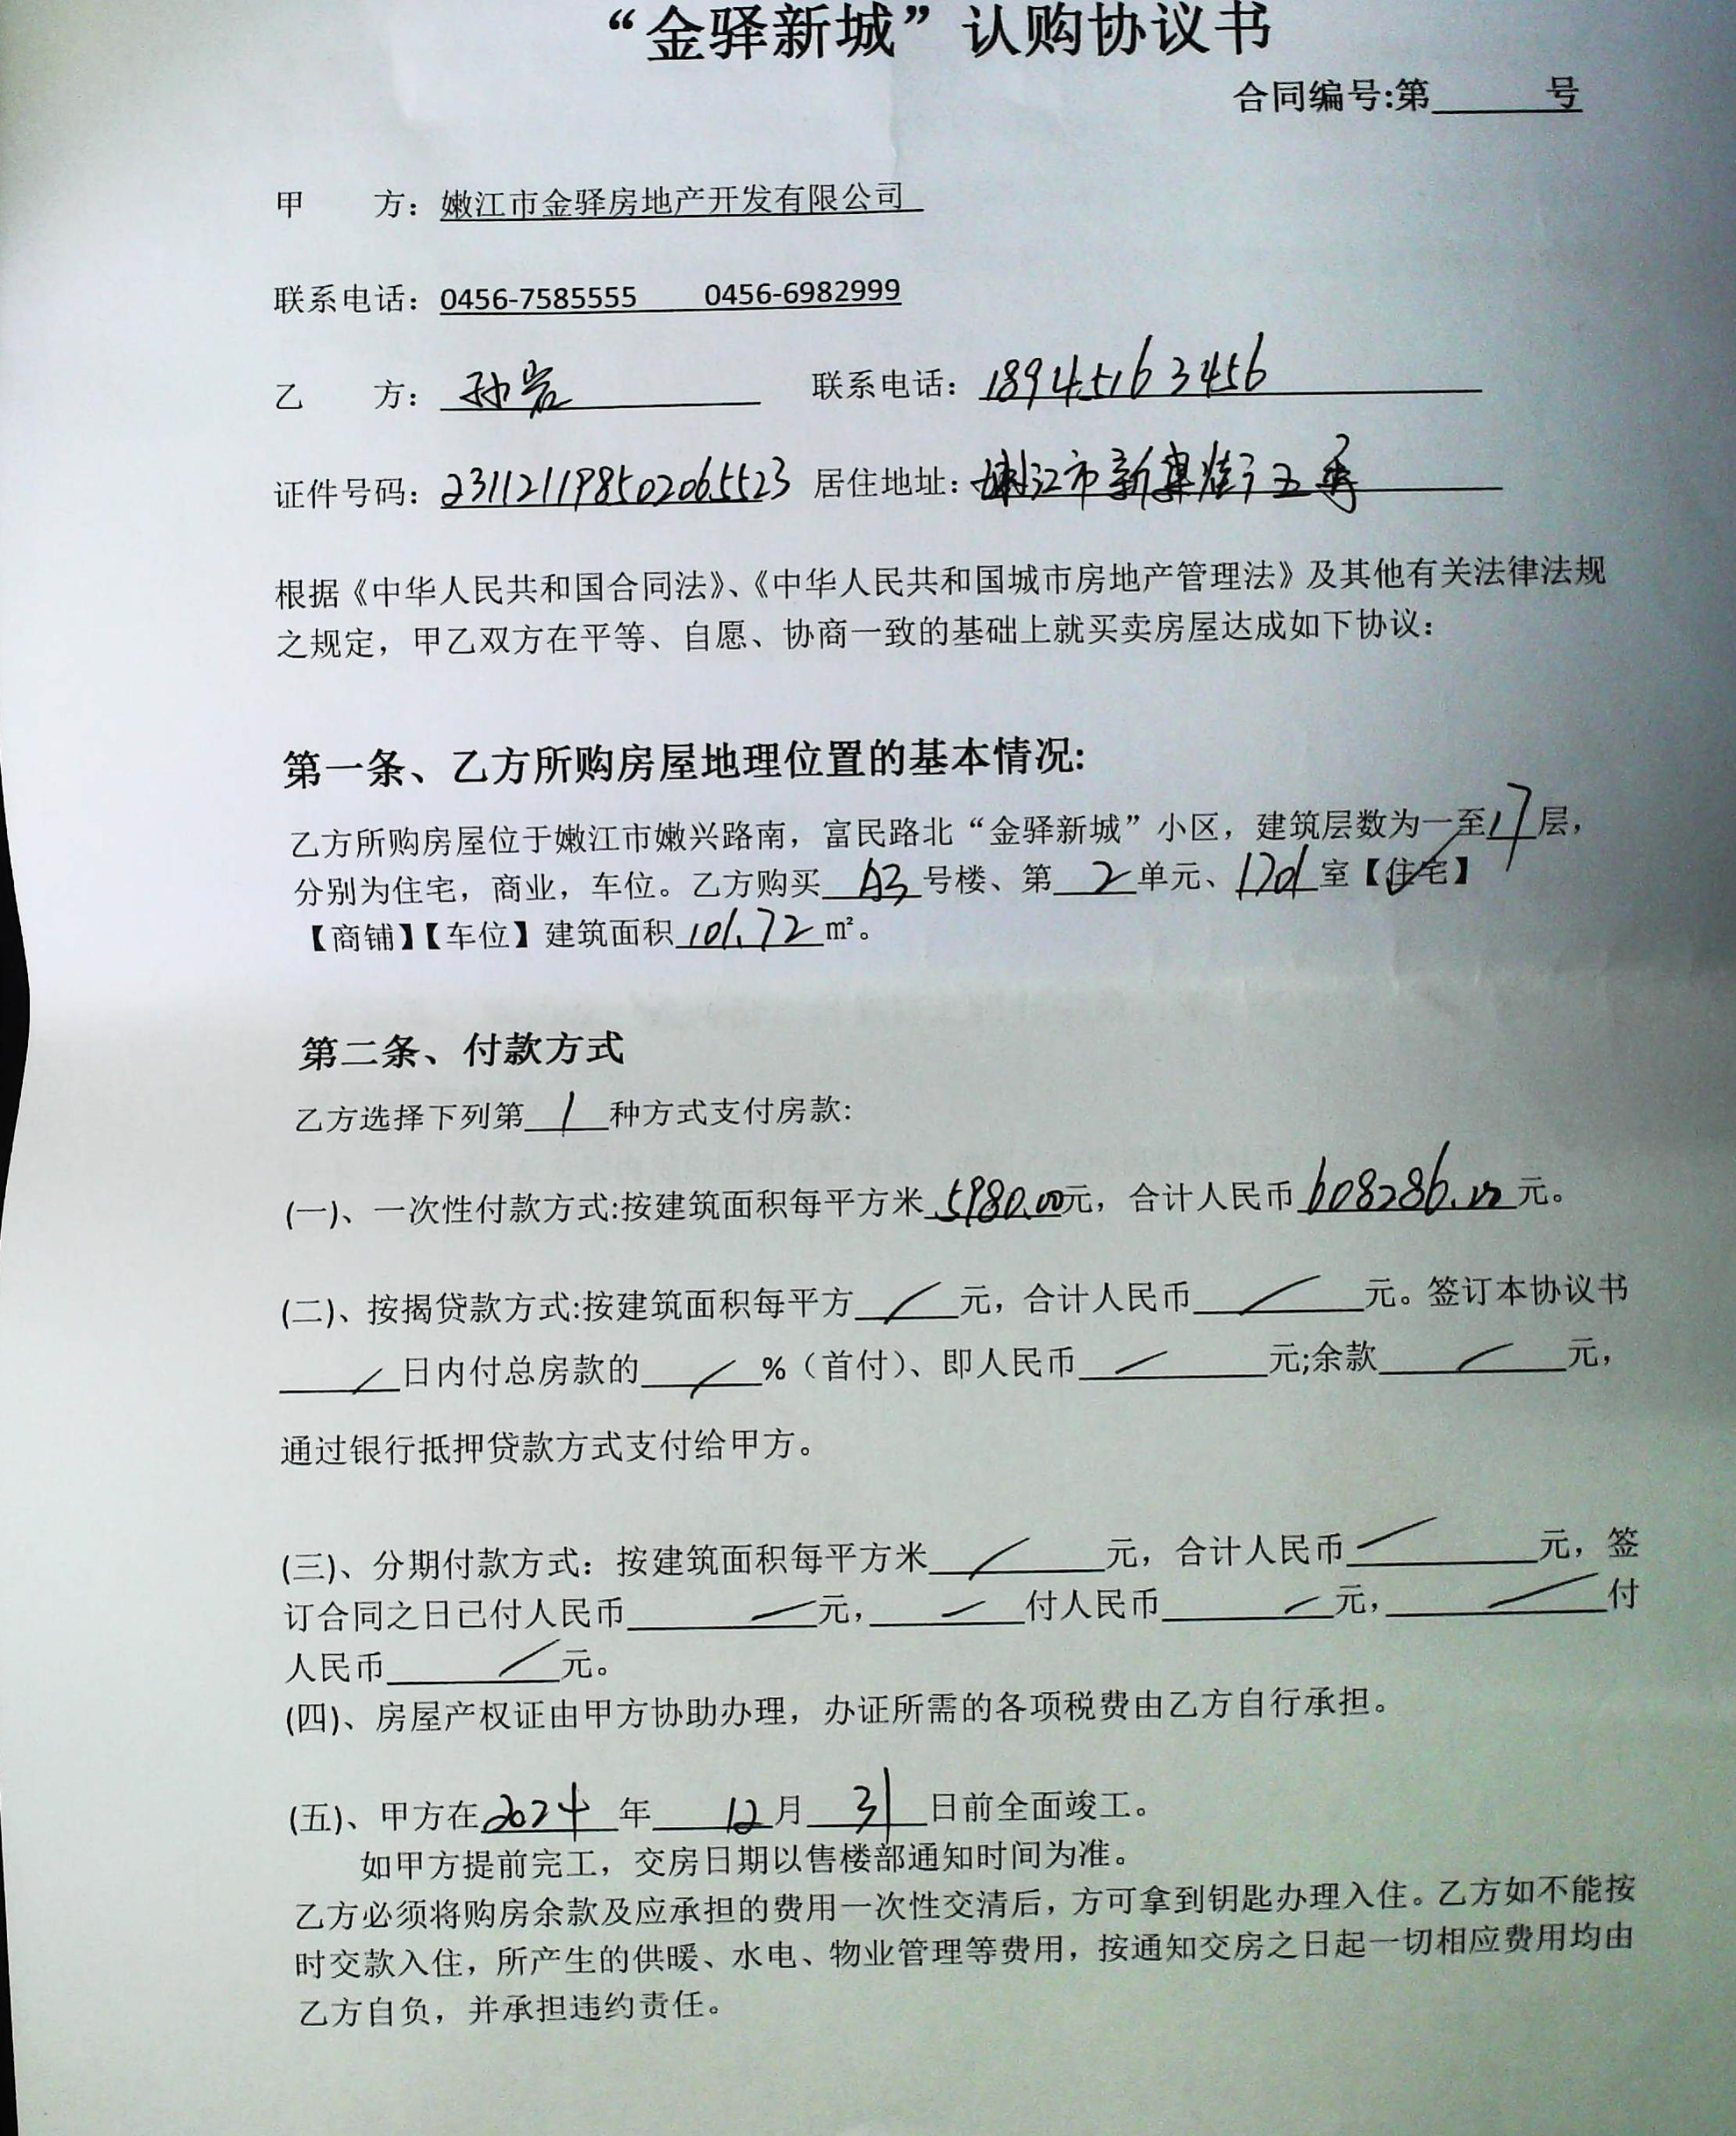 “金驿新城”认购协议书
合同编号:第______号
甲 方：嫩江市金驿房地产开发有限公司
联系电话：0456-7585555 0456-6982999
乙 方：孙岩 联系电话：18945163456
证件号码：231121198502065523 居住地址：嫩江市新 街五
根据《中华人民共和国合同法》、《中华人民共和国城市房地产管理法》及其他有关法律法规
之规定，甲乙双方在平等、自愿、协商一致的基础上就买卖房屋达成如下协议：
第一条、乙方所购房屋地理位置的基本情况:
乙方所购房屋位于嫩江市嫩兴路南，富民路北“金驿新城”小区，建筑层数为一至17层，
分别为住宅，商业，车位。乙方购买 A3 号楼、第 2 单元、1701室【住宅】
【商铺】【车位】建筑面积 101.72 m²。
第二条、付款方式
乙方选择下列第 1 种方式支付房款:
(一)、一次性付款方式:按建筑面积每平方米 5980.00元，合计人民币 608286.00元。
(二)、按揭贷款方式:按建筑面积每平方 / 元，合计人民币 / 元。签订本协议书
/ 日内付总房款的 / %（首付）、即人民币 / 元;余款 / 元，
通过银行抵押贷款方式支付给甲方。
(三)、分期付款方式：按建筑面积每平方米 / 元，合计人民币 / 元，签
订合同之日已付人民币 / 元， / 付人民币 / 元， / 付
人民币 / 元。
(四)、房屋产权证由甲方协助办理，办证所需的各项税费由乙方自行承担。
(五)、甲方在2024 年 12月 31 日前全面竣工。
如甲方提前完工，交房日期以售楼部通知时间为准。
乙方必须将购房余款及应承担的费用一次性交清后，方可拿到钥匙办理入住。乙方如不能按
时交款入住，所产生的供暖、水电、物业管理等费用，按通知交房之日起一切相应费用均由
乙方自负，并承担违约责任。